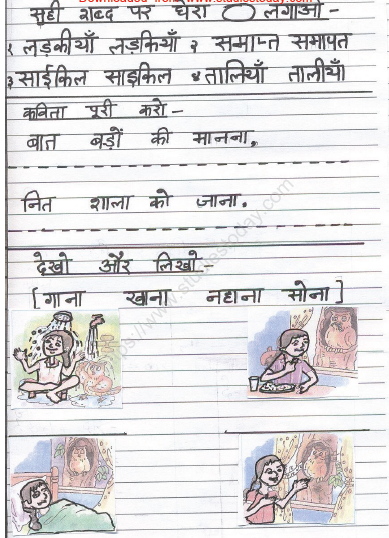 Downloaded from www.studiestoday.com
सही शब्द पर घेरा ⬭ लगाओ -
१ लड़कीयाँ लड़कियाँ २ समाप्त समापत
३ साईकिल साइकिल ४ तालियाँ तालीयाँ
कविता पूरी करो -
बात बड़ों की मानना,
नित शाला को जाना.
देखो और लिखो -
[गाना खाना नहाना सोना]
https://www.studiestoday.com